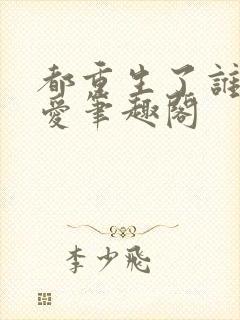 都重生了誰
愛筆趣閣
李少飛